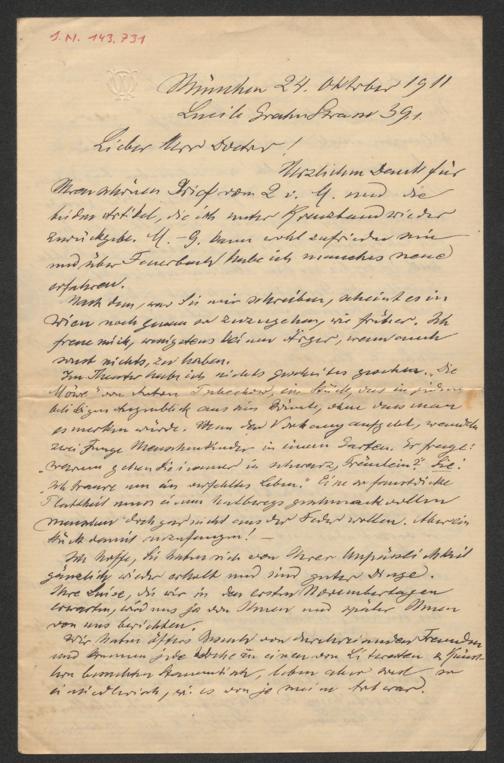 J.N. 143.731
München 24. Oktober 1911
Lucile Grahn Strasse 39 I.
Lieber Herr Doctor!
Herzlichen Dank für
Ihren schönen Brief vom 2 v. M. und die
beiden Artikel, die ich unter Kreuzband wieder
zurückgebe. M.-G. kann wohl zufrieden sein
und über Feuerbach habe ich manches neue
erfahren.
Nach dem, was Sie mir schreiben, scheint es in
Wien noch genau so zuzugehen, wie früher. Ich
freue mich, wenigstens keinen Ärger, wenn auch
sonst nichts, zu haben.
Im Theater habe ich nichts gescheites gesehen. „Die
Möwe" von Anton Tschechow, ein Stück, das in jedem
beliebigen Augenblick aus sein könnte, ohne dass man
es merken würde. Wenn der Vorhang aufgeht, wandeln
zwei junge Menschenkinder in einem Garten. Er fragt:
„Warum gehen Sie immer in schwarz, Fräulein?" Sie:
„Ich traure um ein verfehltes Leben." Eine so faustdicke
Plattheit muss einem halbwegs geschmackvollen
Menschen doch gar nicht aus der Feder wollen. Aber ein
Stück damit anzufangen! —
Ich hoffe, Sie haben sich von Ihrer Unpässlichkeit
gänzlich wieder erholt und sind guter Dinge.
Ihre Luise, die wir in den ersten Novembertagen
erwarten, wird uns ja von Ihnen und später Ihnen
von uns berichten.
Wir haben öfters Besuch von durchreisenden Freunden
und kommen jede Woche an einen von Literaten & Künst-
lern besuchten Stammtisch, leben aber sonst so
einsiedlerisch, wie es von je meine Art war.